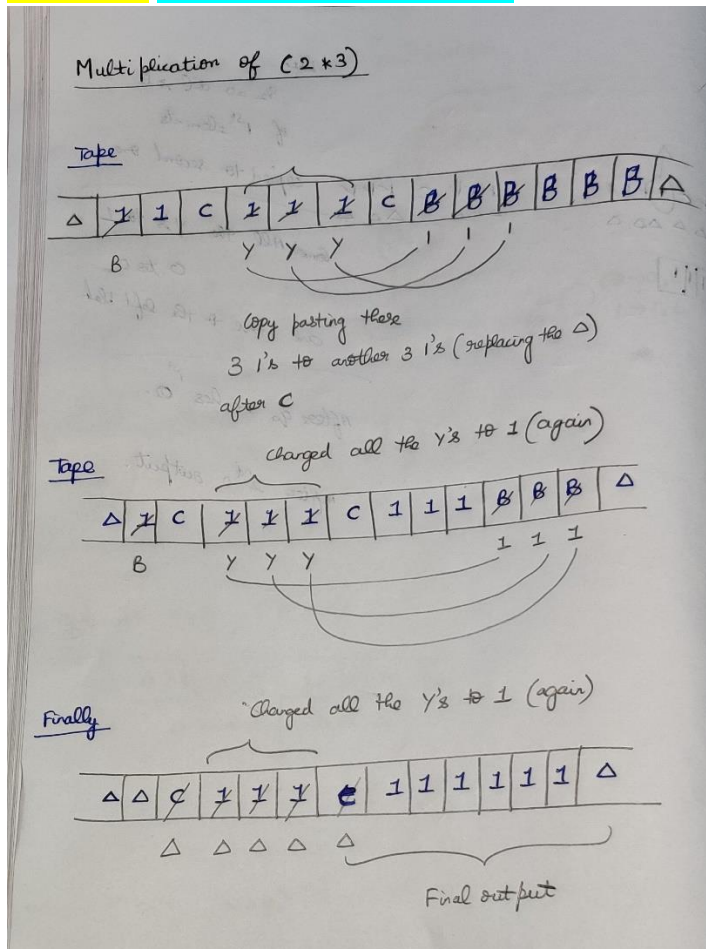 Multiplication of (2*3)
Tape
Δ 1 1 C 1 1 1 C B B B B B B Δ
B Y Y Y 1 1 1
Copy pasting these
3 1's to another 3 1's (replacing the Δ)
after C
Changed all the Y's to 1 (again)
Tape
Δ 1 C 1 1 1 C 1 1 1 B B B Δ
B Y Y Y 1 1 1
Changed all the Y's to 1 (again)
Finally
Δ Δ C 1 1 1 C 1 1 1 1 1 1 Δ
Δ Δ Δ Δ Δ
Final output